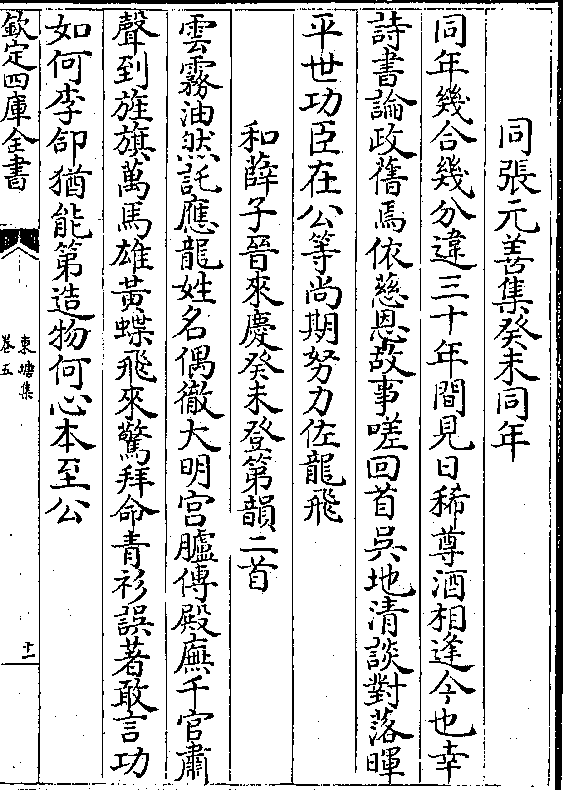 同張元善集癸未同年
同年幾合幾分違三十年間見日稀尊酒相逢今也幸
詩書論政舊焉依慈恩故事嗟回首吳地清談對落暉
平世功臣在公等尚期努力佐龍飛
和薛子晉來慶癸未登第韻二首
雲霧油然託應龍姓名偶徹大明宫臚傳殿廡千官肅
聲到旌旗萬馬雄黃蝶飛來驚拜命青衫誤著敢言功
如何李郃猶能第造物何心本至公
欽定四庫全書
東塘集
卷五
十一